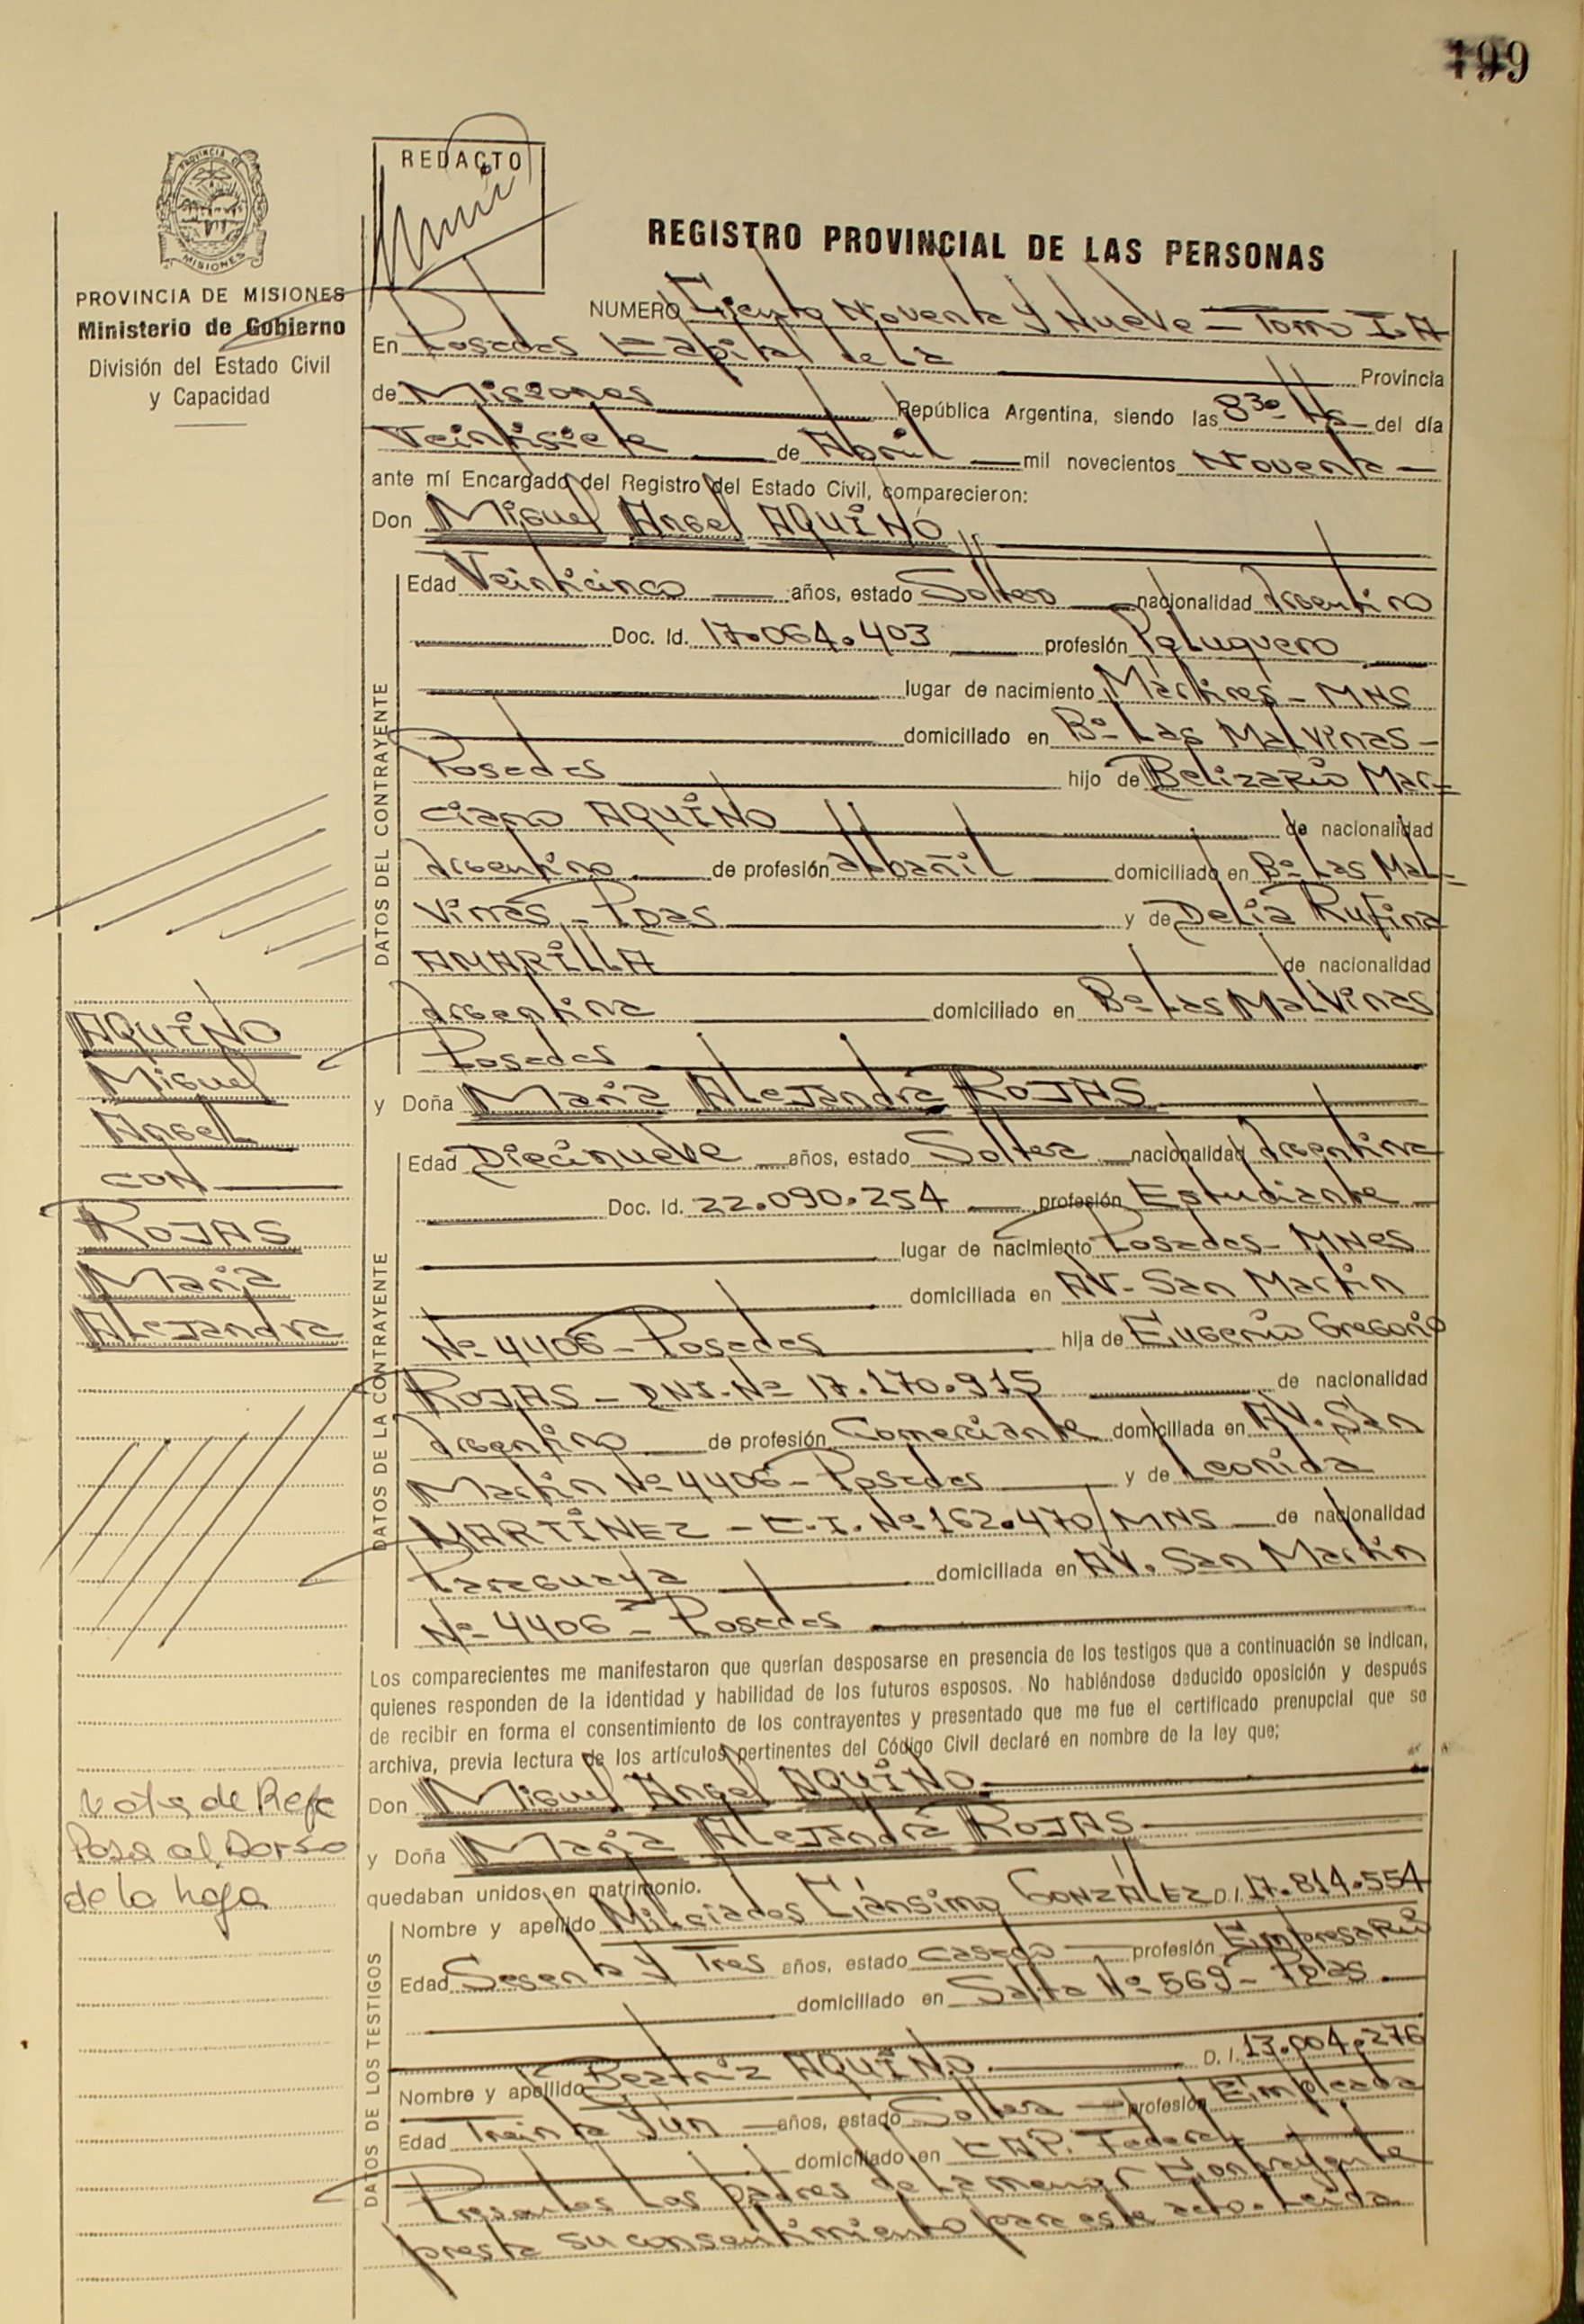 199
PROVINCIA DE
MISIONES
PROVINCIA DE MISIONES
Ministerio de Gobierno
División del Estado Civil
y Capacidad
REDACTO
REGISTRO PROVINCIAL DE LAS PERSONAS
NUMERO Ciento Noventa y Nueve - Tomo I A
En Posadas Capital de La Provincia
de Misiones República Argentina, siendo las 8 30 Hs del día
Veintisiete de Abril mil novecientos Noventa
ante mí Encargado del Registro del Estado Civil, comparecieron:
Don Miguel Angel AQUINO
DATOS DEL CONTRAYENTE
Edad Veinticinco años, estado Soltero nacionalidad Argentino
Doc. Id. 17.064.403 profesión Peluquero
lugar de nacimiento Mártires - MNS
domiciliado en Bº Las Malvinas -
Posadas hijo de Belizario Mar=
ciano AQUINO de nacionalidad
Argentino de profesión albañil domiciliado en Bº Las Mal=
vinas - Pdas y de Delia Rufina
AMARILLA de nacionalidad
Argentina domiciliado en Bº Las Malvinas
Posadas
y Doña María Alejandra ROJAS
DATOS DE LA CONTRAYENTE
Edad Diecinueve años, estado Soltera nacionalidad Argentina
Doc. Id. 22.090.254 profesión Estudiante
lugar de nacimiento Posadas - MNES
domiciliada en AV. San Martín
Nº 4406 - Posadas hija de Eugenio Gregorio
ROJAS - DNI. Nº 17.170.915 de nacionalidad
Argentino de profesión Comerciante domiciliada en AV. San
Martín Nº 4406 - Posadas y de Leonida
MARTÍNEZ - C.I. Nº 162.470/MNS de nacionalidad
Paraguaya domiciliada en AV. San Martín
Nº 4406 - Posadas
Los comparecientes me manifestaron que querían desposarse en presencia de los testigos que a continuación se indican,
quienes responden de la identidad y habilidad de los futuros esposos. No habiéndose deducido oposición y después
de recibir en forma el consentimiento de los contrayentes y presentado que me fue el certificado prenupcial que se
archiva, previa lectura de los artículos pertinentes del Código Civil declaré en nombre de la ley que;
Don Miguel Angel AQUINO
y Doña María Alejandra ROJAS
quedaban unidos en matrimonio.
DATOS DE LOS TESTIGOS
Nombre y apellido Milciades GONZALEZ D.I. 17.814.554
Edad Sesenta y Tres años, estado casado profesión Empresario
domiciliado en Salta Nº 569 - Pdas.
Nombre y apellido Beatriz AQUINO D.I. 13.004.276
Edad Treinta y un años, estado Soltera profesión Empleada
domiciliado en CAP. Federal
Presentes Los padres de La menor Contrayente
presta su consentimiento para este acto. Leída
AQUINO
Miguel
Angel
CON
ROJAS
María
Alejandra
Nota de Refe
Pasa al Dorso
de la hoja